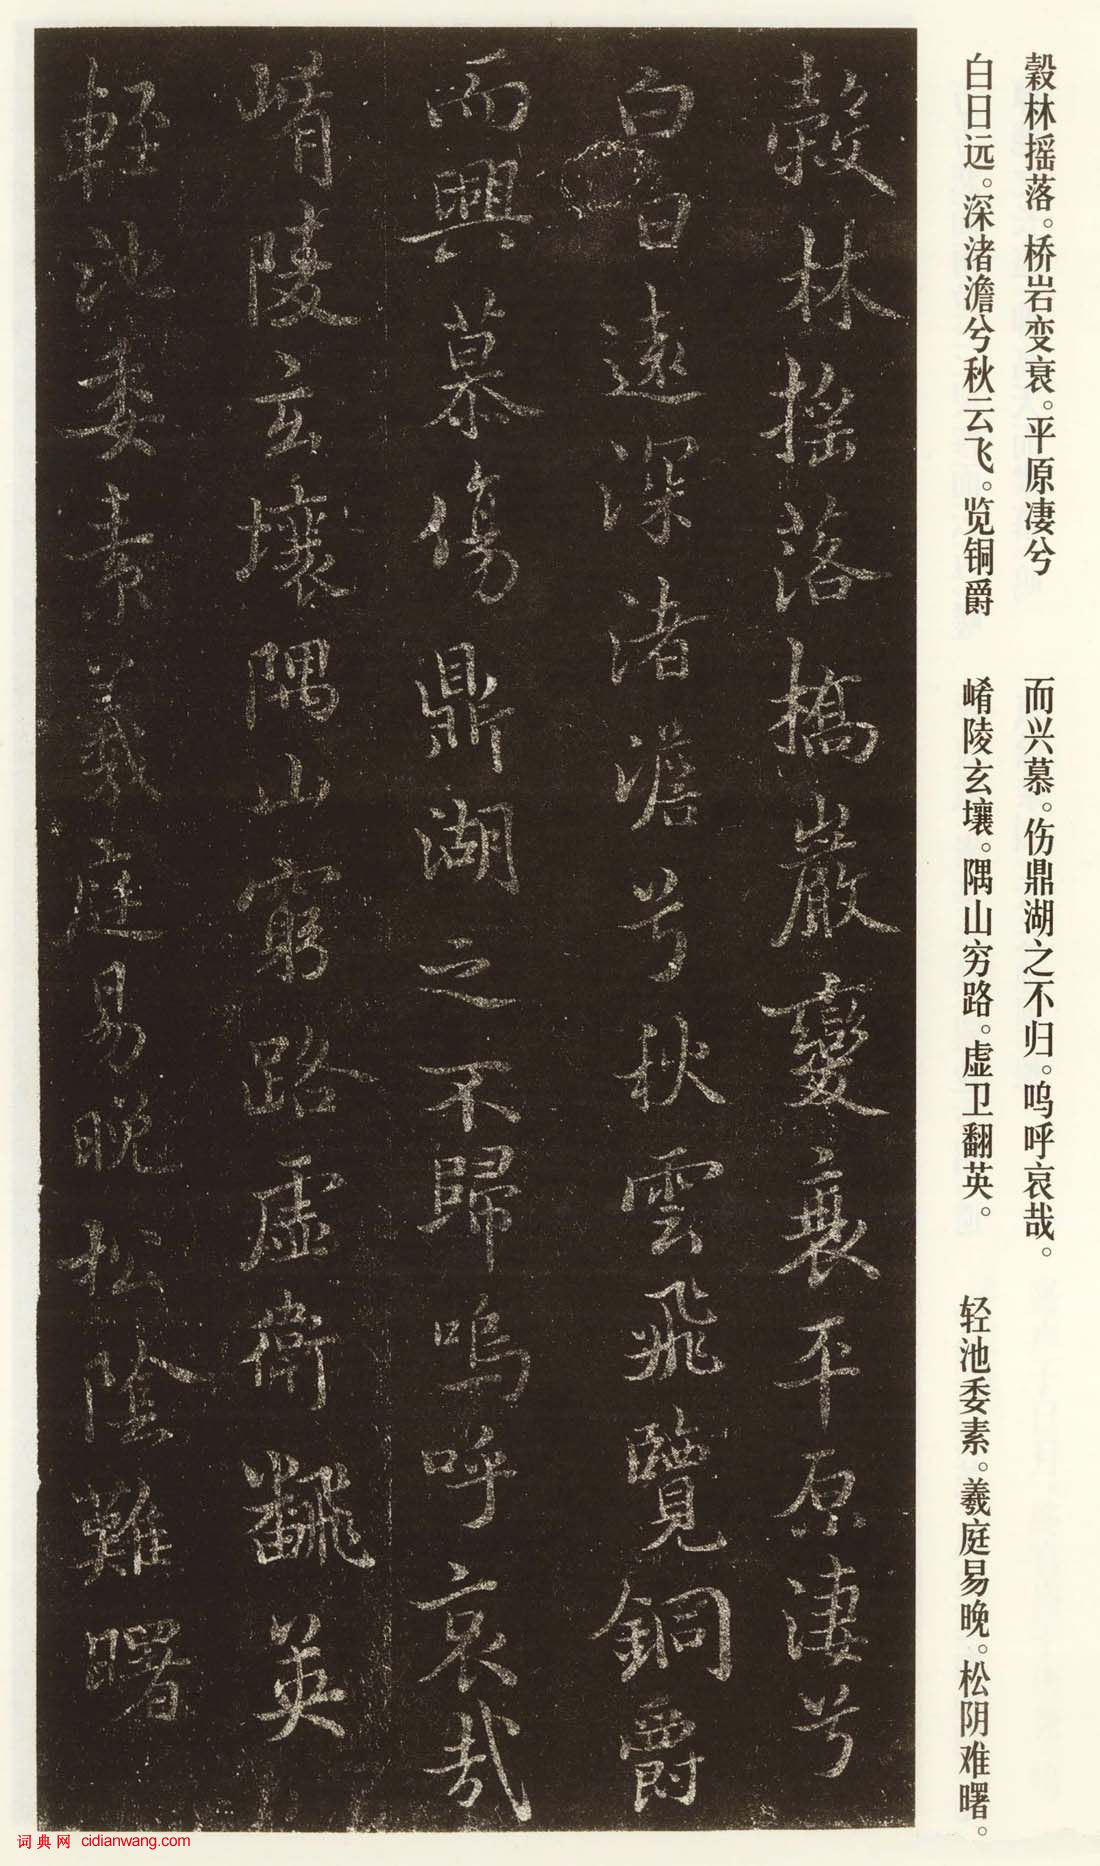 榖林摇落。桥岩变衰。平原凄兮
白日远。深渚澹兮秋云飞。览铜爵
而兴慕。伤鼎湖之不归。呜呼哀哉。
崤陵玄壤。隅山穷路。虚卫翻英。
轻池委素。羲庭易晚。松阴难曙。
榖林搖落橋巖變衰平原淒兮
白日遠深渚澹兮秋雲飛覽銅爵
而興慕傷鼎湖之不歸嗚呼哀哉
崤陵玄壤隅山窮路虛衛翻英
輕池委素羲庭易晚松陰難曙
词典网 cidianwang.com